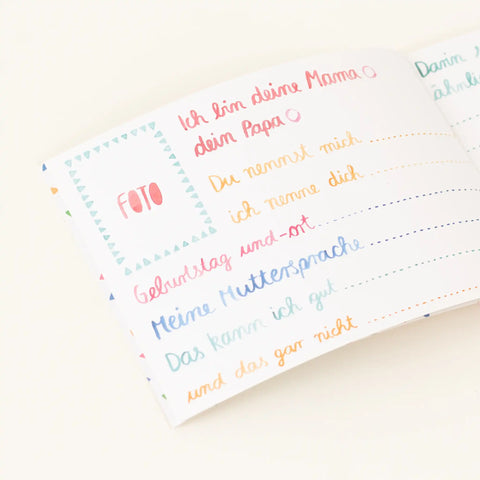 Ich bin deine Mama
dein Papa
Du nennst mich
ich nenne dich
FOTO
Geburtstag und -ort
Meine Muttersprache
Das kann ich gut
und das gar nicht
Darin